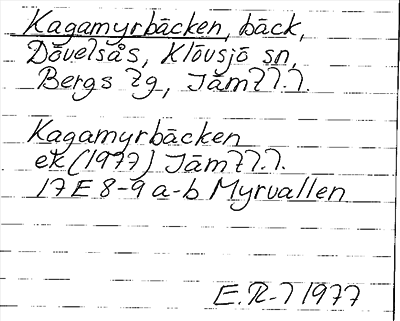 Kagamyrbäcken, bäck,
Dövelsås, Klövsjö sn,
Bergs tg, Jämtl.l.
Kagamyrbäcken
ek (1977) Jämtl.l.
17E 8-9 a-b Myrvallen
E.R-l 1977